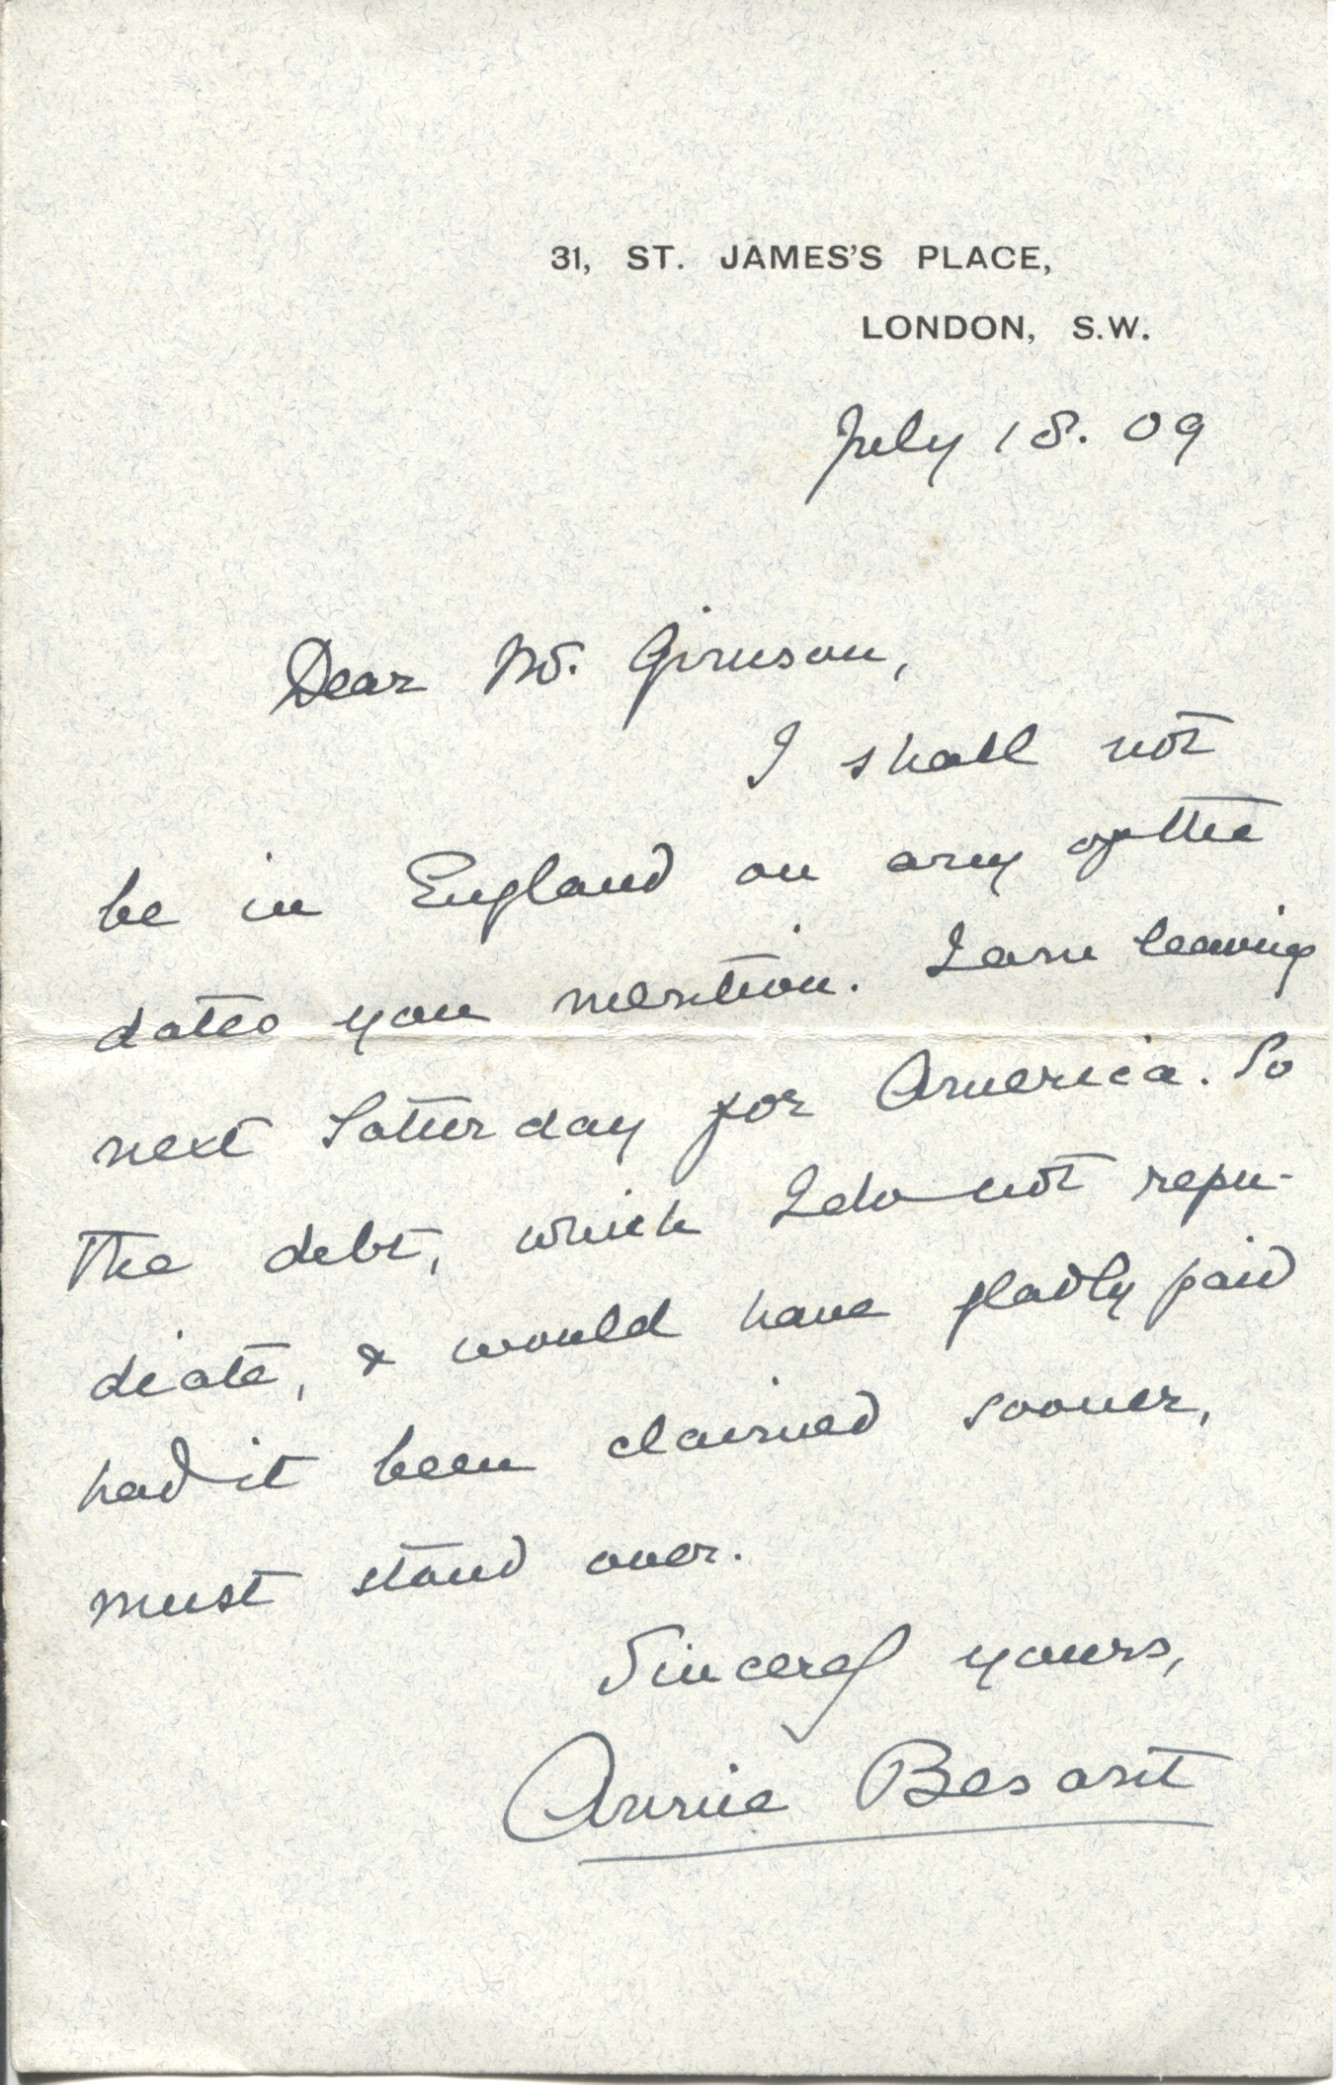 31, ST. JAMES'S PLACE,
LONDON, S.W.
July 18. 09
Dear Mr. Gimson,
I shall not
be in England on any of the
dates you mention. I am leaving
next Saturday for America. So
the debt, which I do not repu-
diate, & would have gladly paid
had it been claimed sooner,
must stand over.
Sincerely yours,
Annie Besant